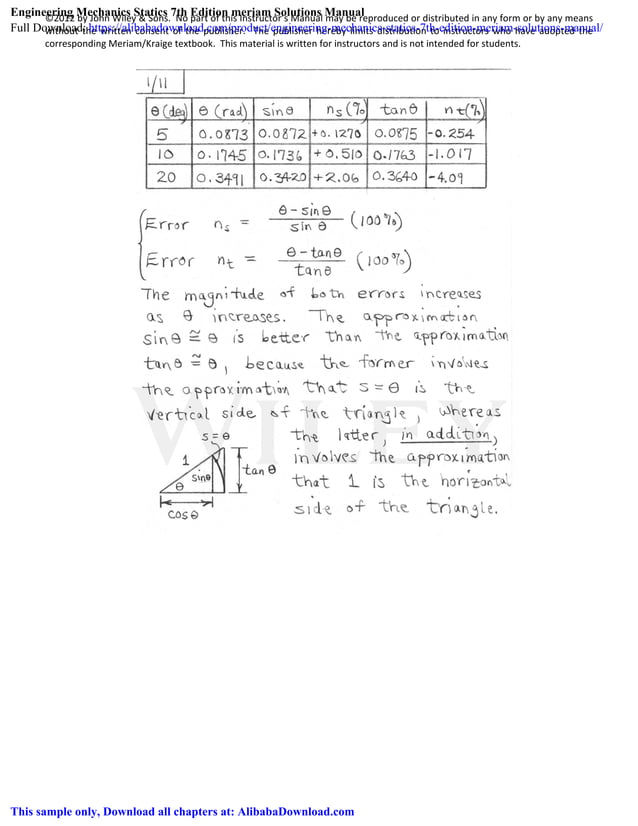 Engineering Mechanics Statics 7th Edition meriam Solutions Manual
©2012 by John Wiley & Sons. No part of this Instructor's Manual may be reproduced or distributed in any form or by any means
Full Download: https://alibabadownload.com/product/engineering-mechanics-statics-7th-edition-meriam-solutions-manual/
without the written consent of the publisher. The publisher hereby limits distribution to instructors who have adopted the
corresponding Meriam/Kraige textbook. This material is written for instructors and is not intended for students.
1/11
θ (deg) θ (rad) sinθ ns (%) tanθ nt (%)
5 0.0873 0.0872 +0.1270 0.0875 -0.254
10 0.1745 0.1736 +0.510 0.1763 -1.017
20 0.3491 0.3420 +2.06 0.3640 -4.09
Error ns = θ - sinθ / sin θ (100%)
Error nt = θ - tanθ / tanθ (100%)
The magnitude of both errors increases
as θ increases. The approximation
sinθ ≅ θ is better than the approximation
tanθ ≅ θ, because the former involves
the approximation that s = θ is the
vertical side of the triangle, whereas
the latter, in addition,
involves the approximation
that 1 is the horizontal
side of the triangle.
s = θ
1
sinθ
tan θ
θ
cos θ
WILEY
This sample only, Download all chapters at: AlibabaDownload.com